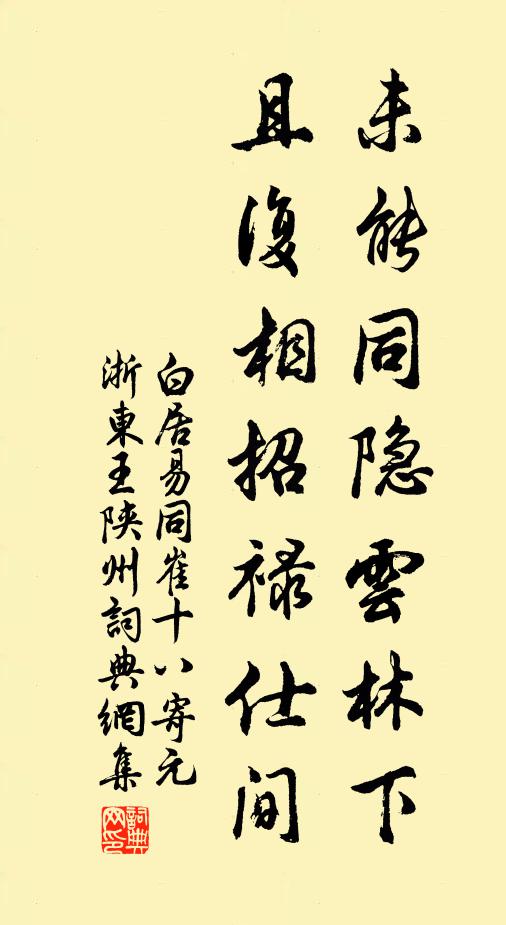 未能同隐雲林下
且復相招禄仕间
白居易同崔十八寄元
浙東王陕州詞典網集
詞典
网印